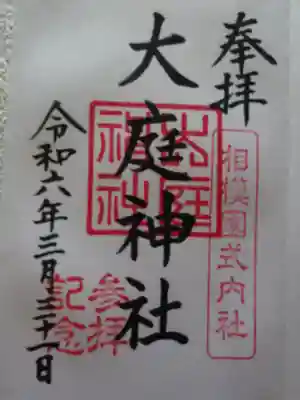 奉拝
相模國式内社
大庭神社
大庭神社
令和六年三月三十一日
参拝記念